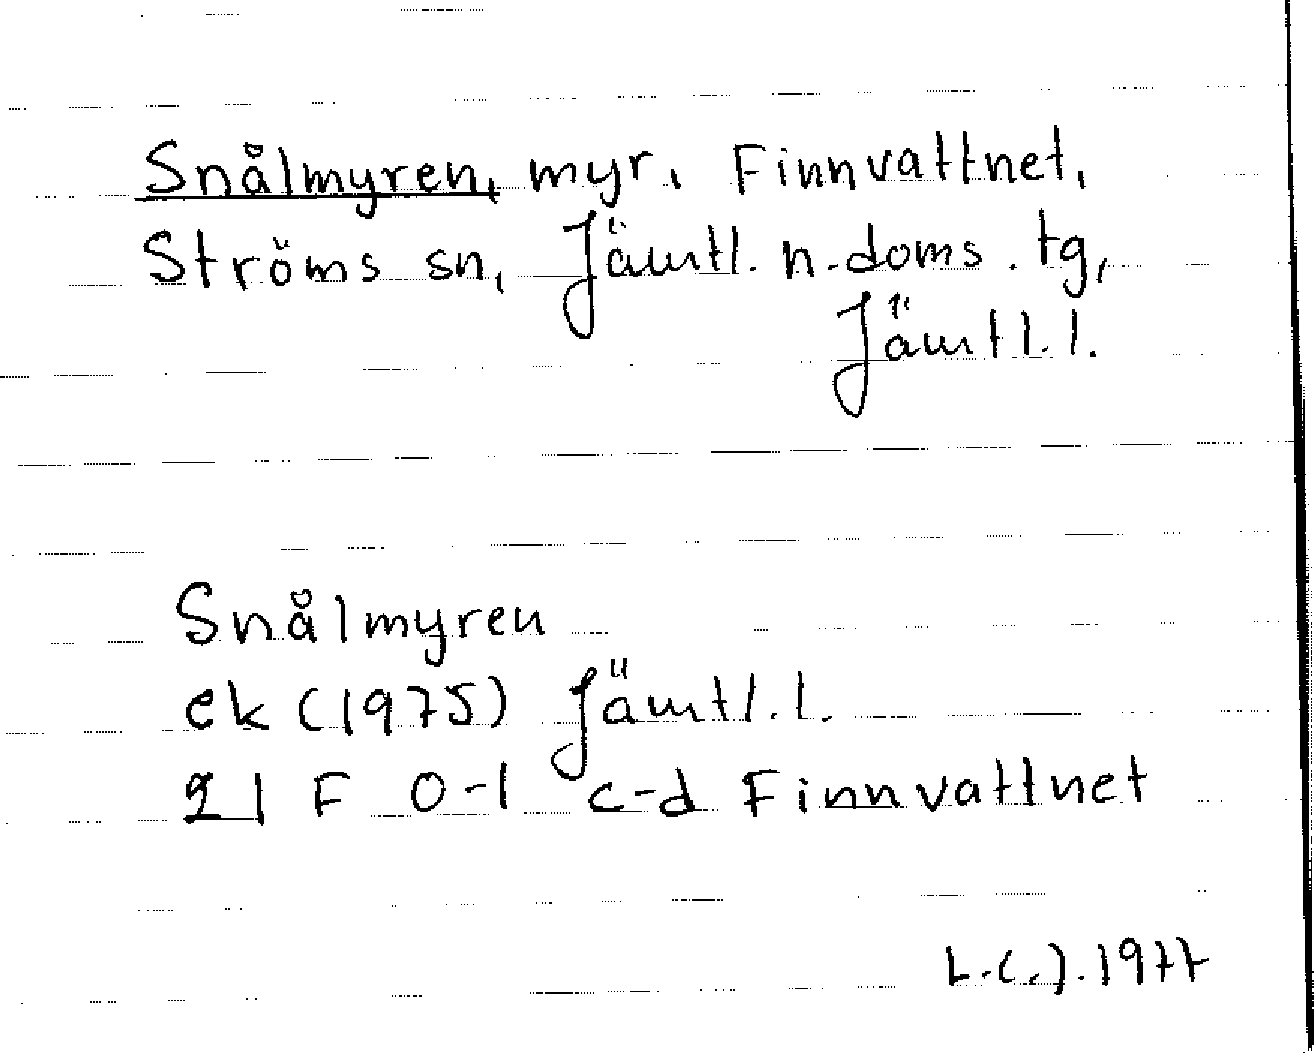 Snålmyren, myr, Finnvattnet,
Ströms sn, Jämtl. n. doms. tg,
Jämtl. l.
Snålmyren
ek (1975) Jämtl. l.
21 F 0-1 c-d Finnvattnet
L.C.J. 1977